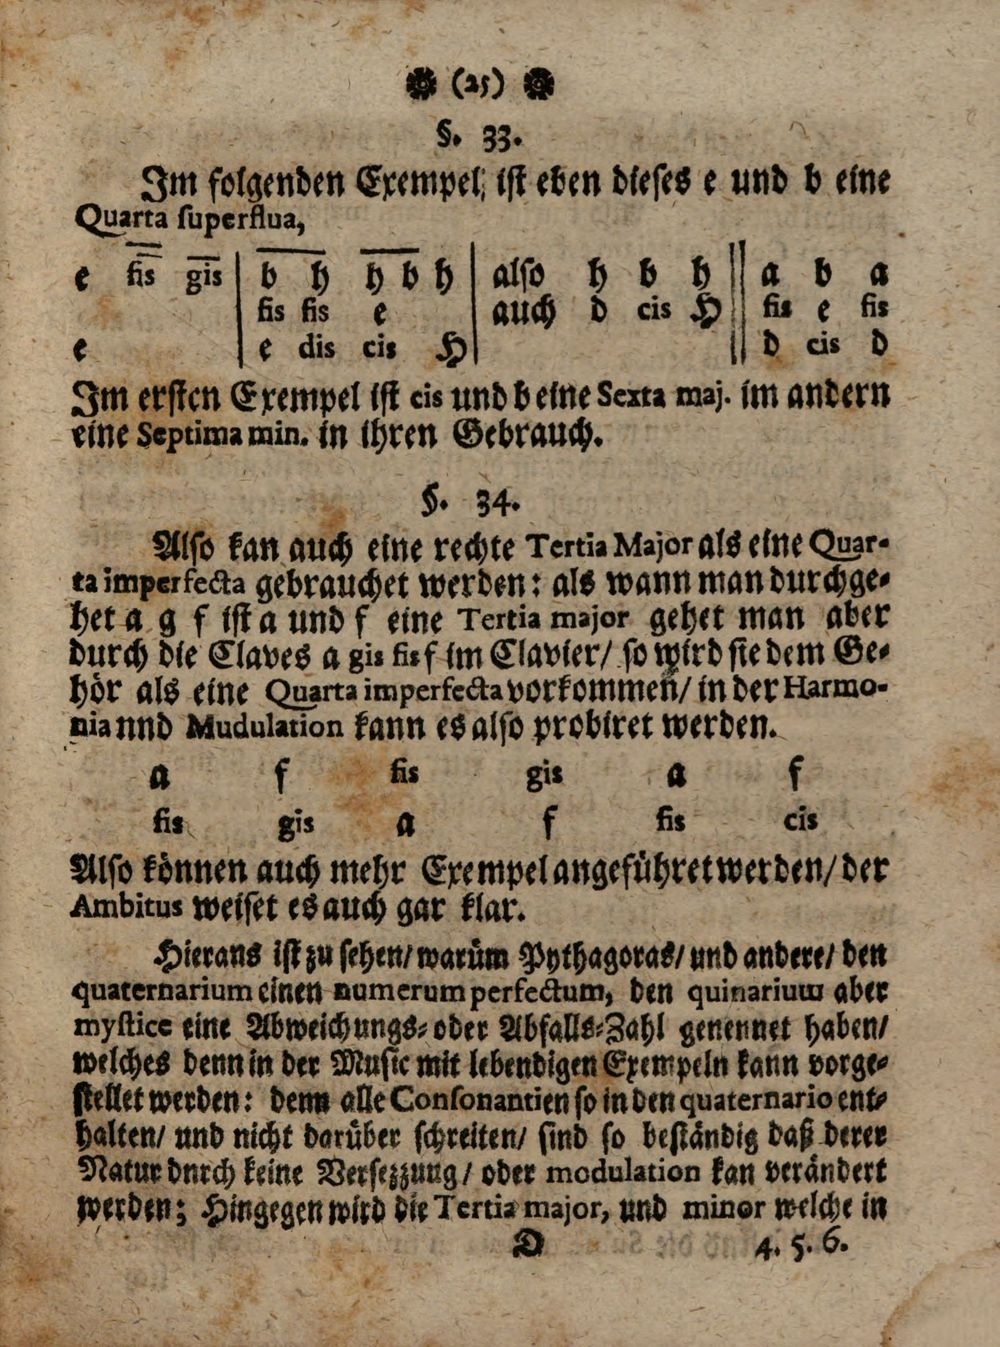 (25)
§. 33.
Im folgenden Exempel, ist eben dieses e und b eine
Quarta superflua,
e fis gis | b h h b h | also h b h || a b a
fis fis e | auch d cis H || fis e fis
e | e dis cis H | || d cis d
Im ersten Exempel ist cis und b eine Sexta maj. im andern
eine Septima min. in ihren Gebrauch.
§. 34.
Also kan auch eine rechte Tertia Major als eine Quar-
ta imperfecta gebrauchet werden: als wann man durchge-
het a g f ist a und f eine Tertia major gehet man aber
durch die Claves a gis fis f im Clavier/ so wird sie dem Ge-
hör als eine Quarta imperfecta vorkommen/ in der Harmo-
nia nnd Mudulation kann es also probiret werden.
a f fis gis a f
fis gis a f fis cis
Also können auch mehr Exempel angeführet werden/ der
Ambitus weiset es auch gar klar.
Hierans ist zu sehen/ warům Pythagoras/ und andere/ den
quaternarium einen numerum perfectum, den quinarium aber
mystice eine Abweichungs-oder Abfalls-Zahl genennet haben/
welches denn in der Music mit lebendigen Exempeln kann vorge-
stellet werden: denn alle Consonantien so in den quaternario ent-
halten/ und nicht darüber schreiten/ sind so beständig daß derer
Natur dnrch keine Versezzung/ oder modulation kan verändert
werden; Hingegen wird die Tertia major, und minor welche in
D 4. 5. 6.